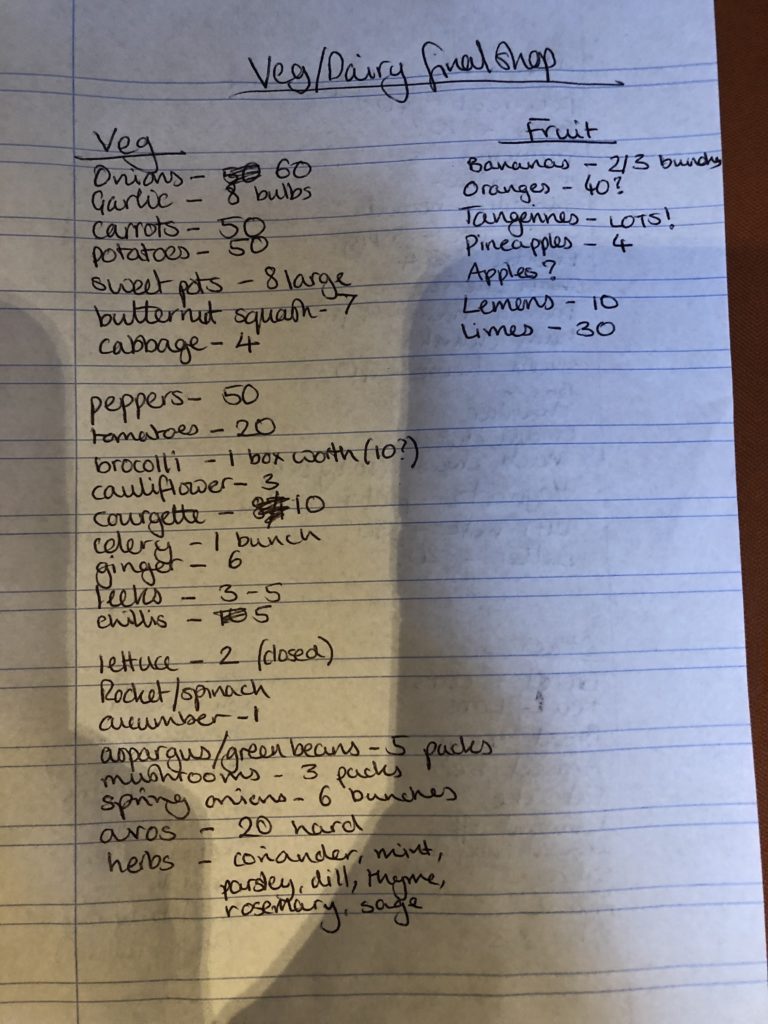 Veg/Dairy final shop
Veg
Onions - 60
Garlic - 8 bulbs
carrots - 50
potatoes - 50
sweet pots - 8 large
butternut squash - 7
cabbage - 4
peppers - 50
tomatoes - 20
brocolli - 1 box worth (10?)
cauliflower - 3
courgette - 10
celery - 1 bunch
ginger - 6
leeks - 3-5
chillis - 5
lettuce - 2 (closed)
Rocket/spinach
cucumber - 1
aspargus/green beans - 5 packs
mushrooms - 3 packs
spring onions - 6 bunches
avos - 20 hard
herbs - coriander, mint,
parsley, dill, thyme,
rosemary, sage
Fruit
Bananas - 2/3 bunches
Oranges - 40?
Tangerines - LOTS!
Pineapples - 4
Apples?
Lemons - 10
Limes - 30